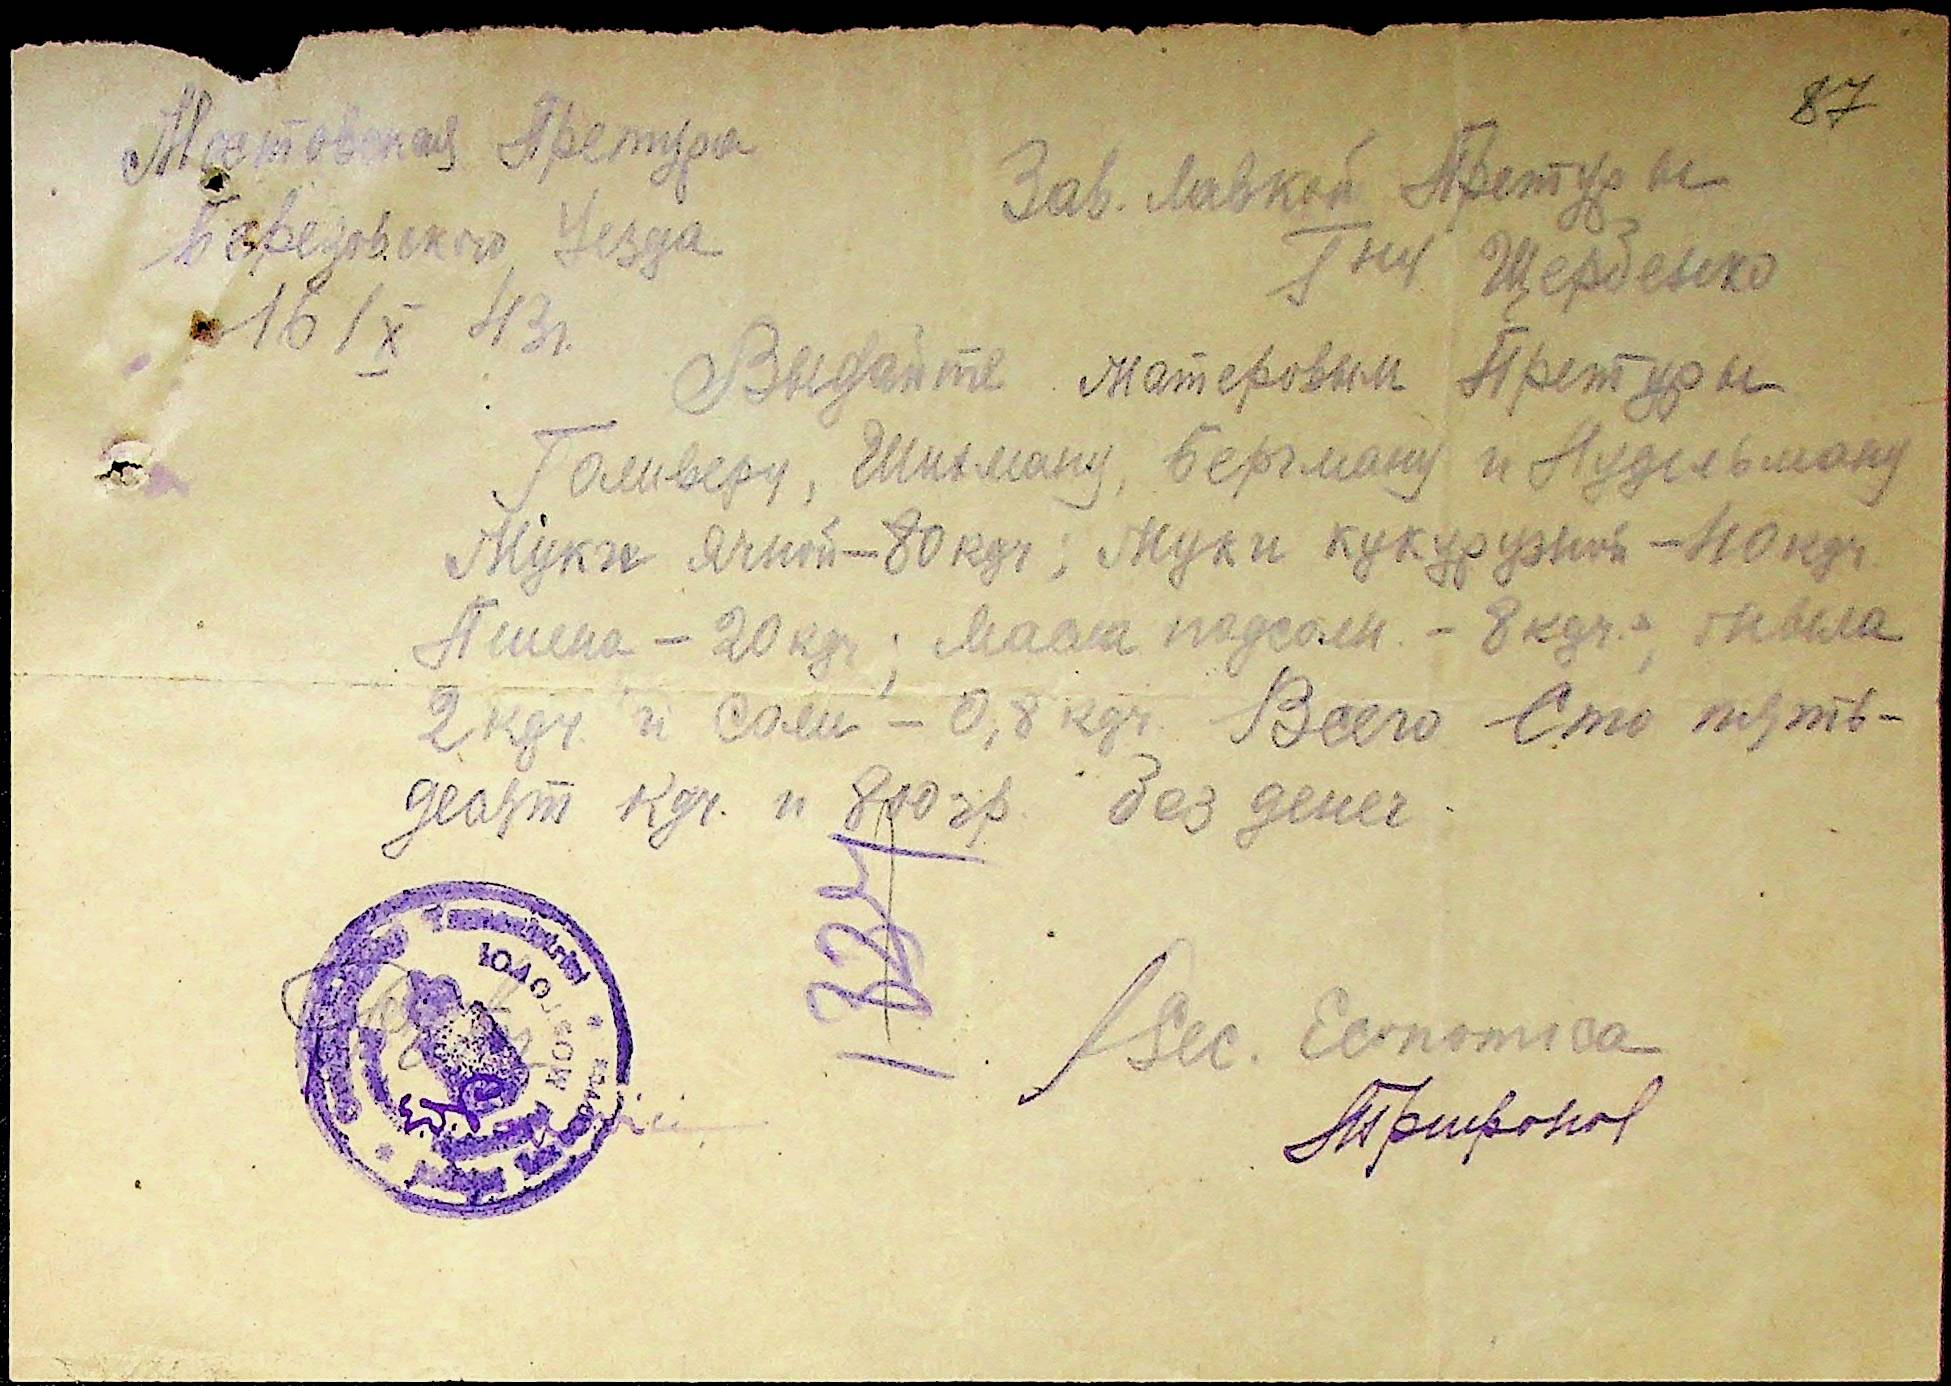 87
Мостовская Претура
Березовского Уезда
16/IX 43г.
Зав. Лавкой Претуры
Гну Щербенко
Выдайте матеровым Претуры
Голиверу, Шихману, Бергману и Нудельману
Муки ячной - 80 кгр; Муки кукурузной - 40 кгр
Пшена - 20 кгр; Масла подсолн. - 8 кгр.; мыла
2 кгр и соли - 0,8 кгр. Всего Сто пять-
десят кгр. и 800 гр. без денег.
Sec. Economica
Трифонов
MOSTOVOI